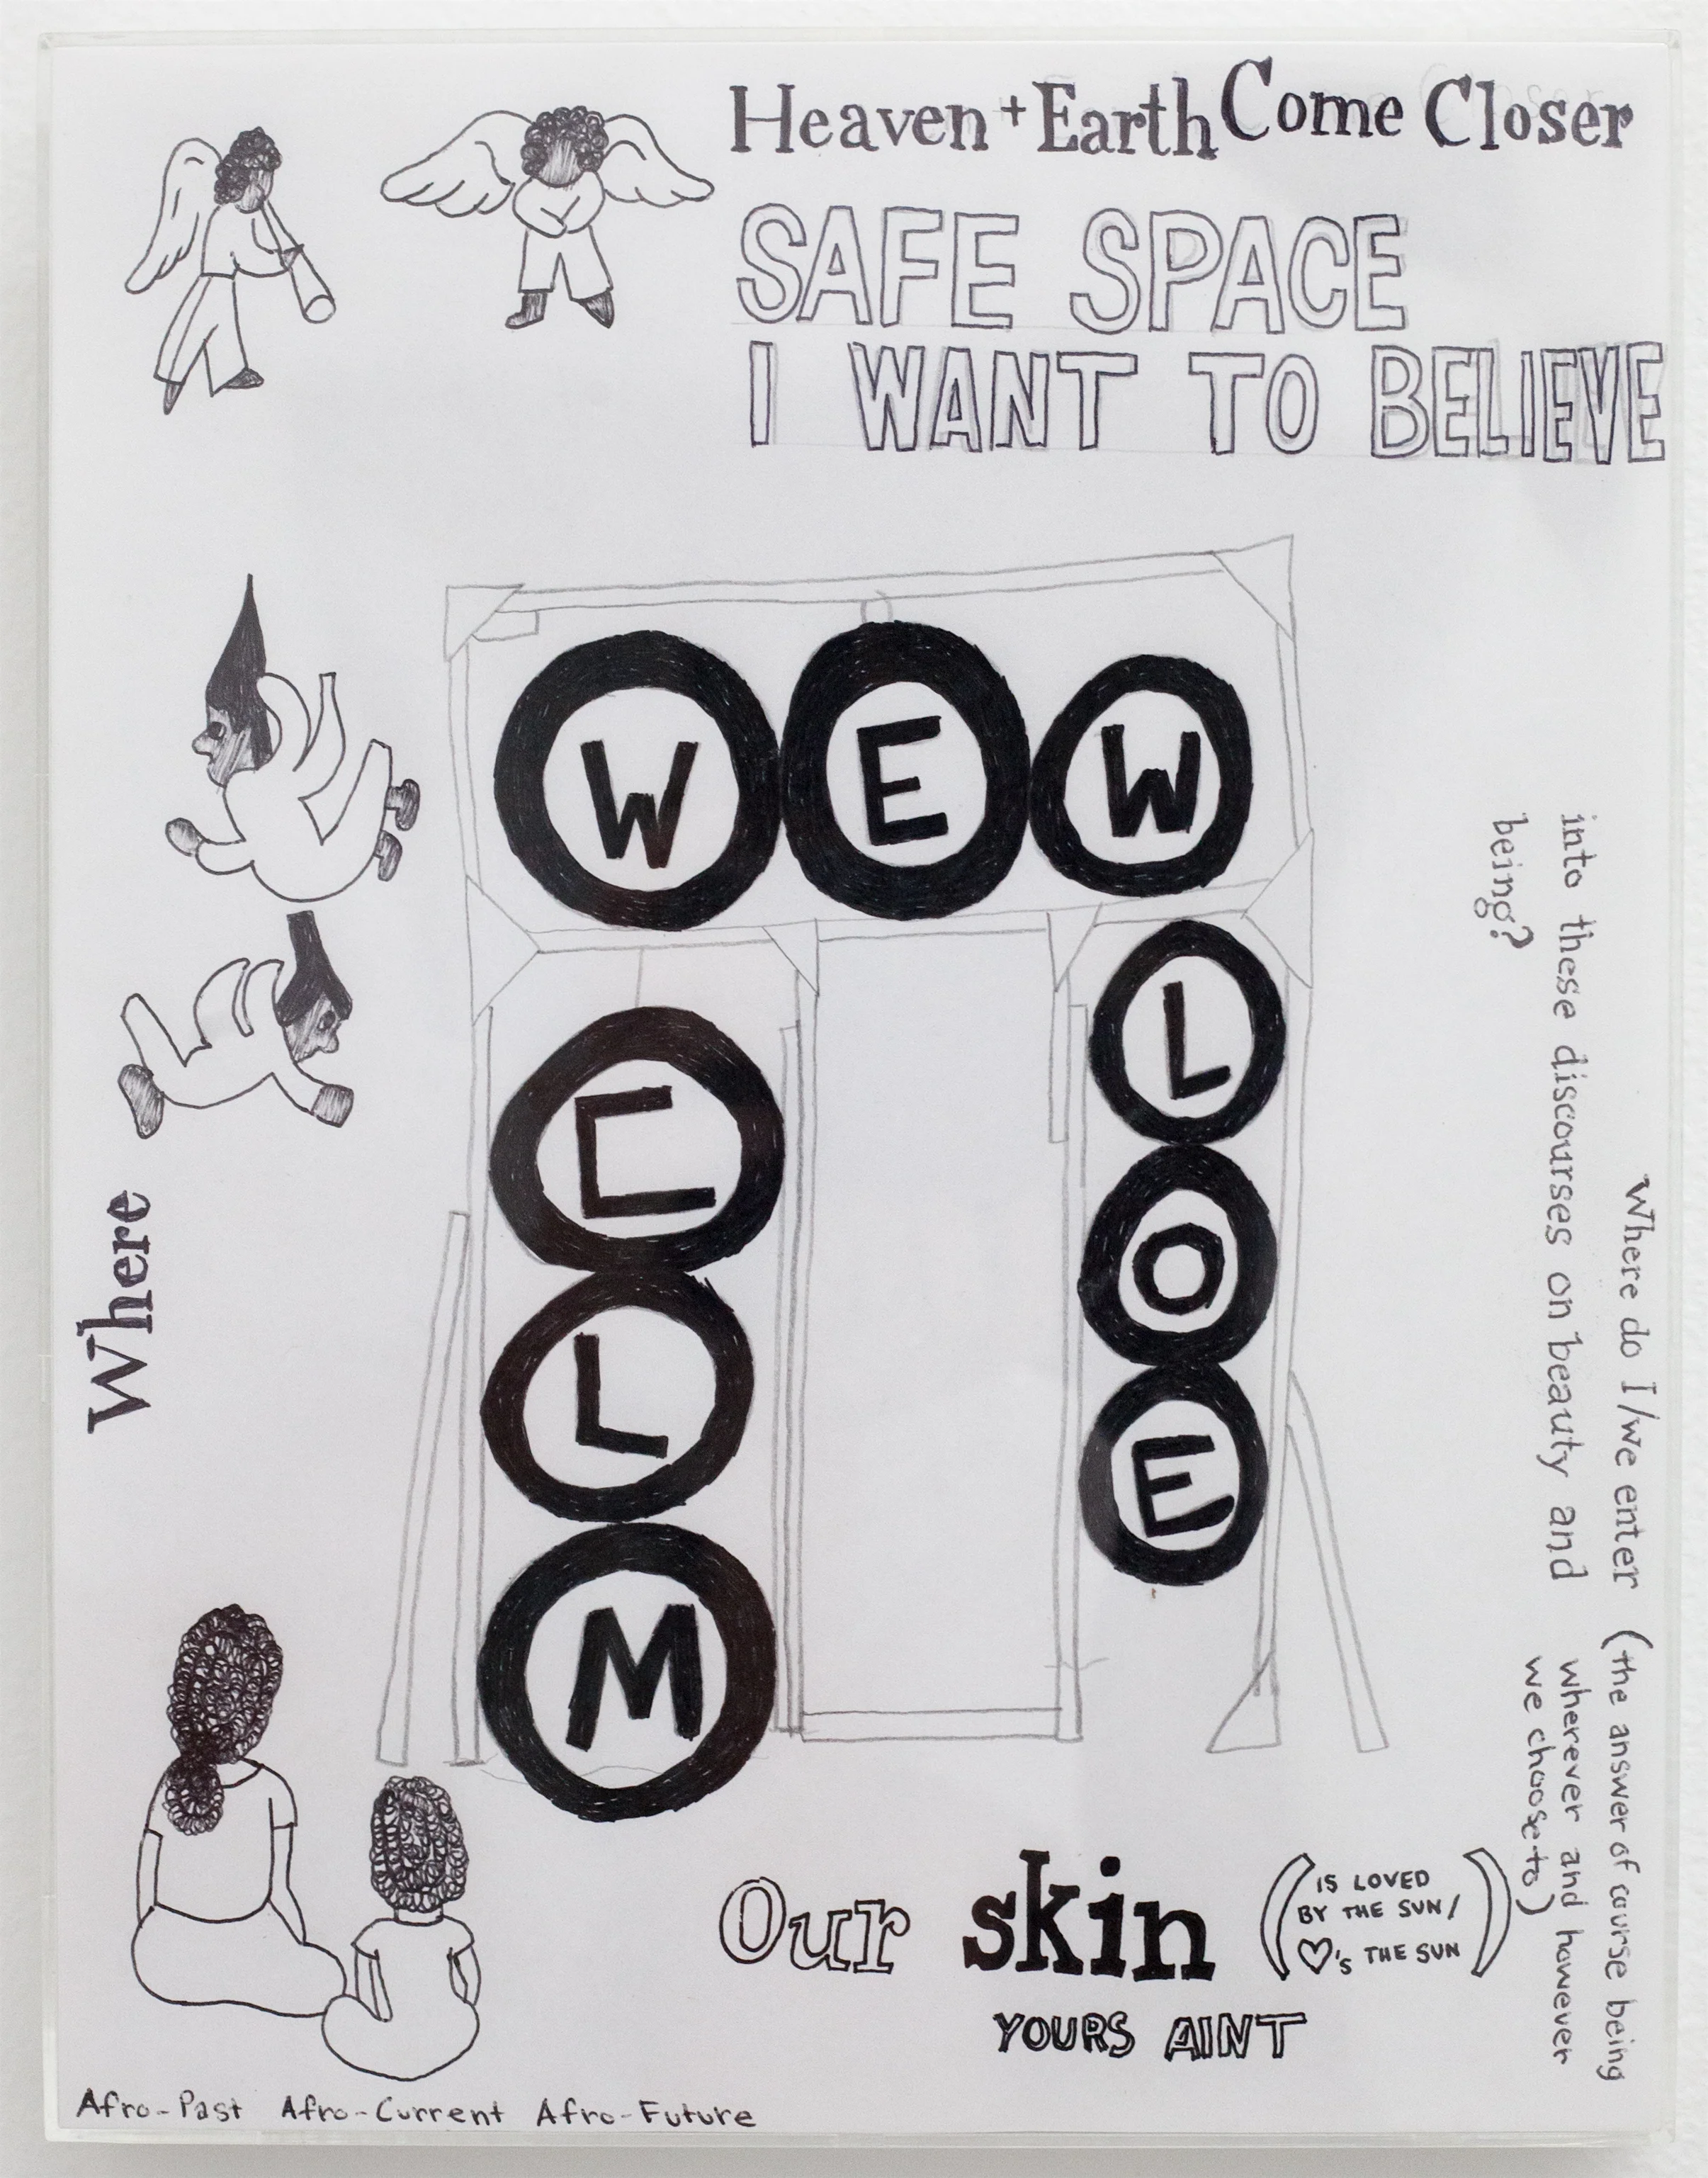 Heaven + Earth Come Closer
SAFE SPACE
I WANT TO BELIEVE
W E W
C
L
M
L
O
E
Where
Where do I/we enter
into these discourses on beauty and
being?
(the answer of course being
wherever and however
we choose to)
Our skin
(IS LOVED
BY THE SUN/
♡'S THE SUN)
YOURS AINT
Afro-Past Afro-Current Afro-Future